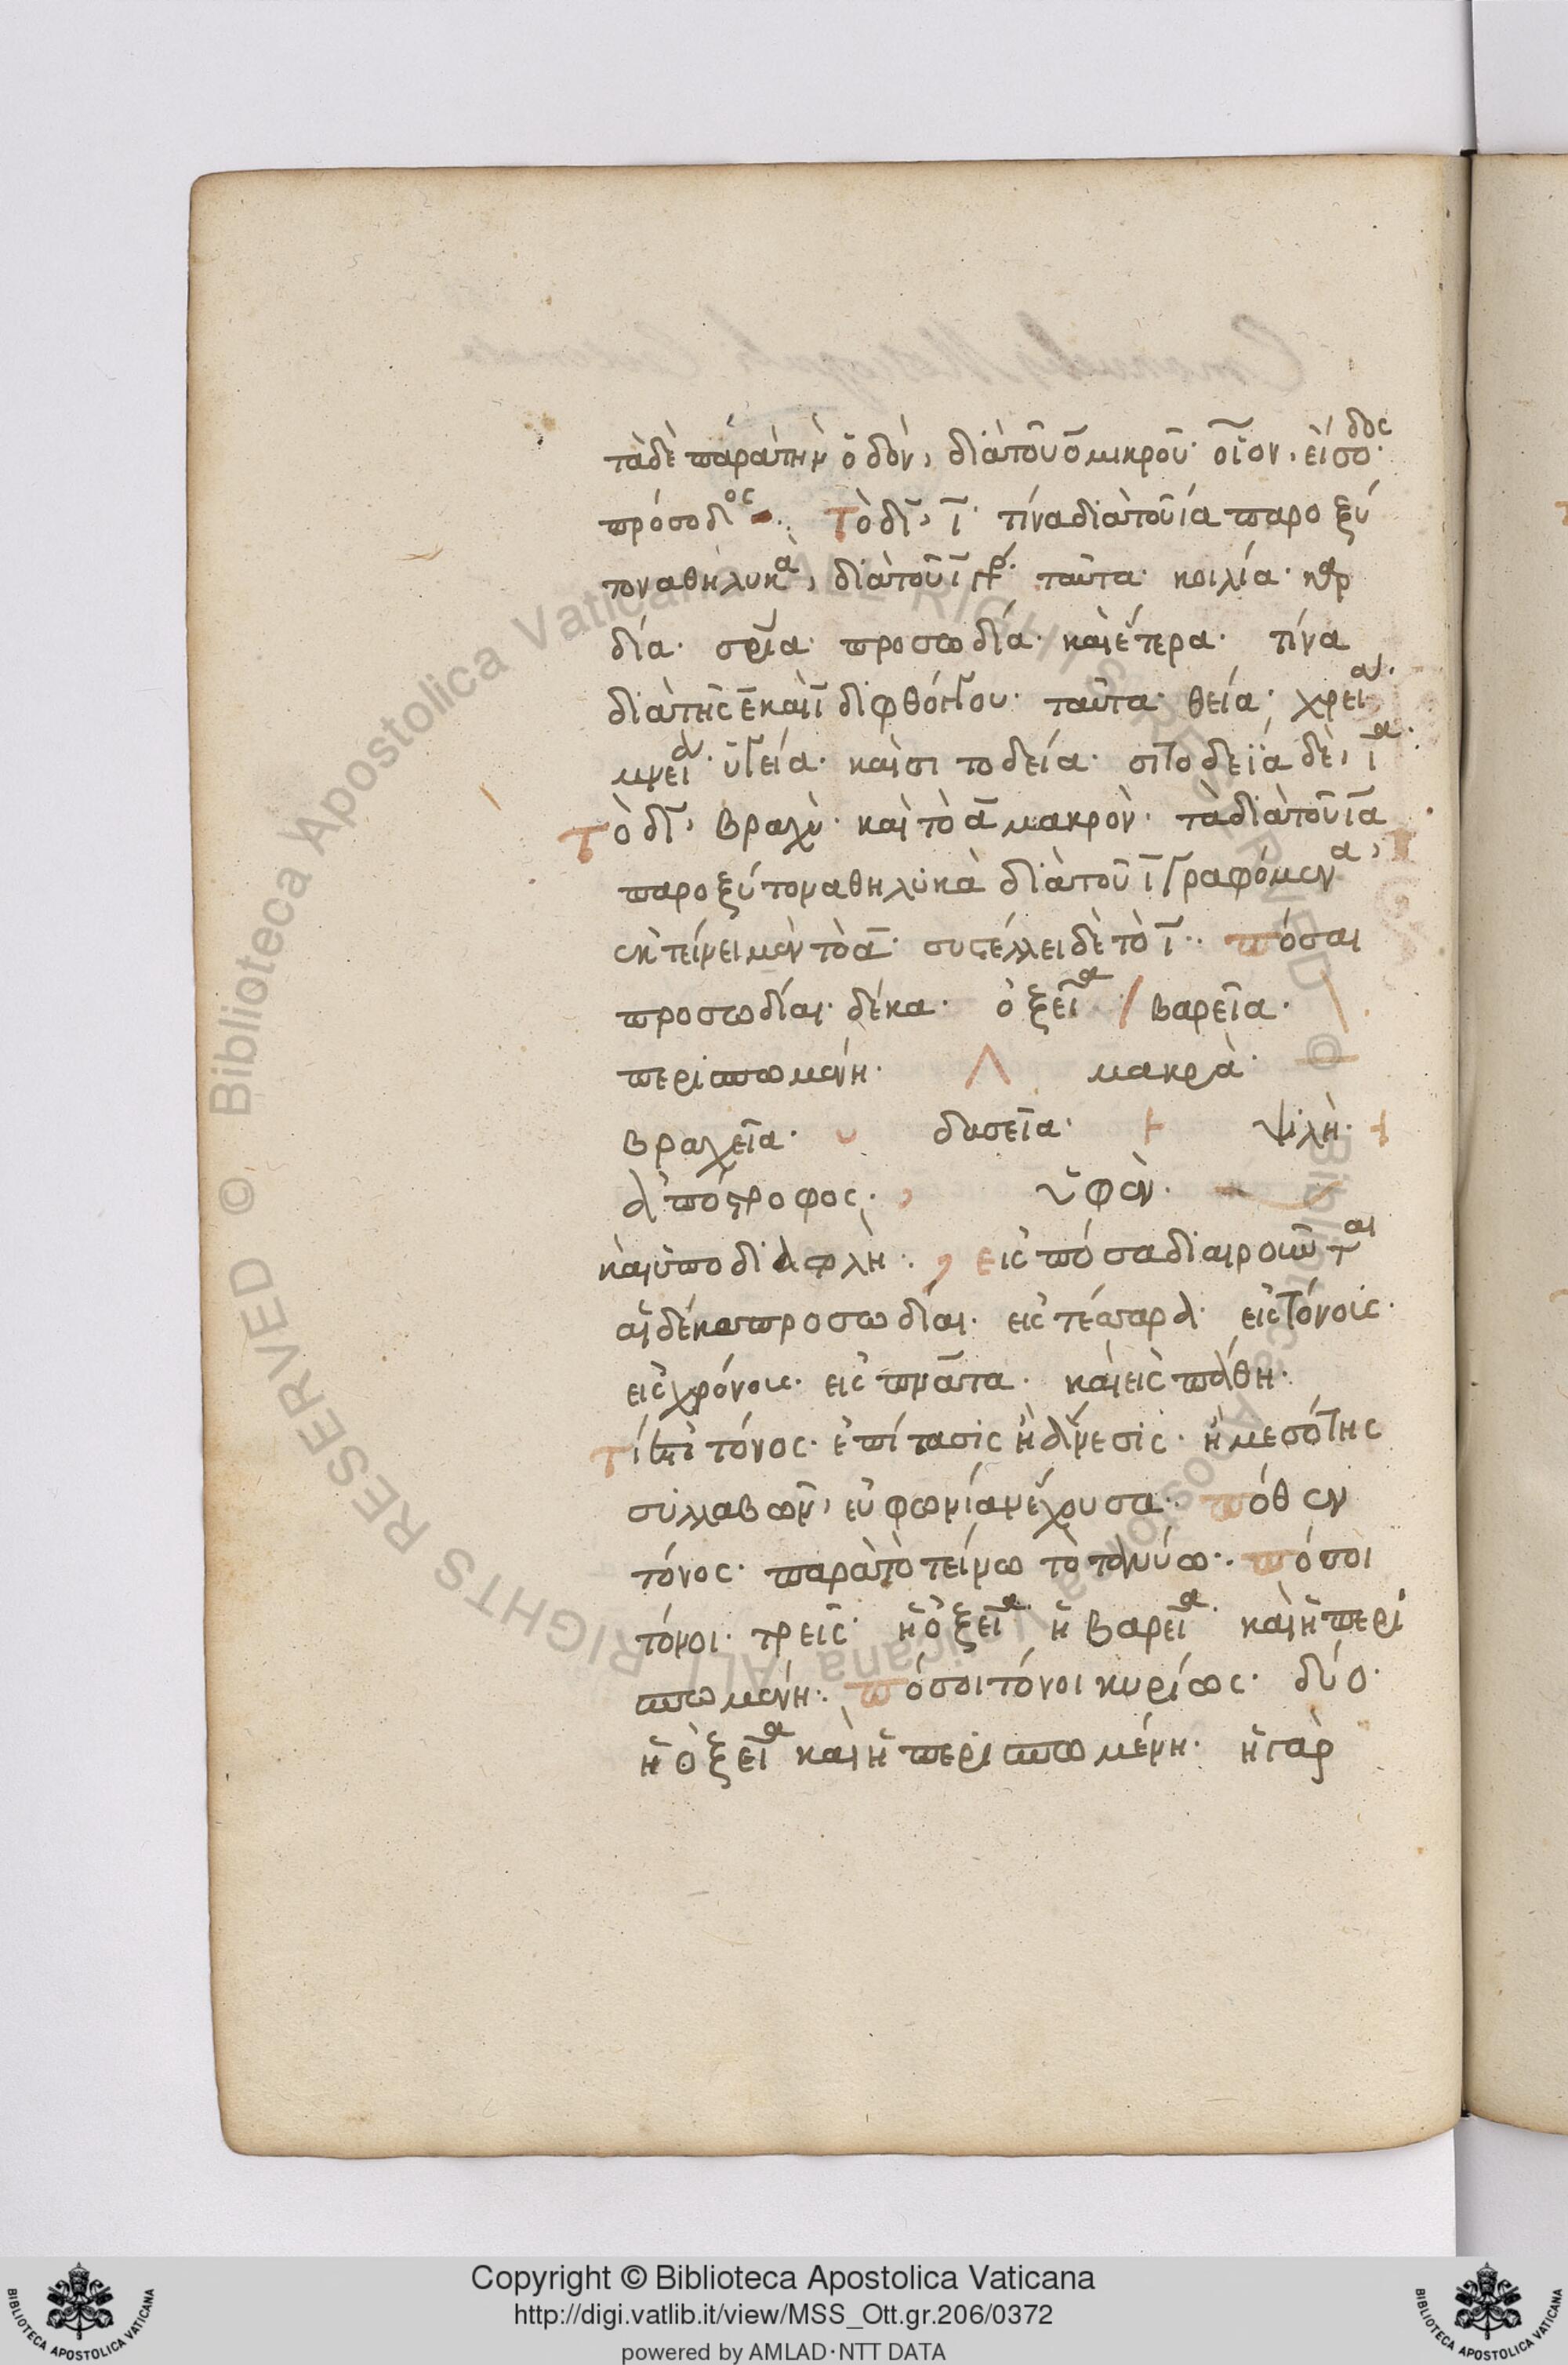 τὰ δὲ παρὰ τὴν ὁδὸν, διὰ τοῦ ο μικροῦ· οἷον, εἴσοδος·
πρόσοδος. Τὸ δι, ι· τίνα διὰ τοῦ ια παροξύ
τονα θηλυκὰ, διὰ τοῦ ι γρ· ταῦτα· κοιλία· καρ
δία· προσωδία· καὶ ἕτερα· τίνα
διὰ τῆς ε καὶ ι διφθόγγου· ταῦτα· θεία· χρεία·
μνεία· ὑγεία· καὶ σιτοδεία· σιτοδεΐα δὲ, ια·
Τὸ δι, βραχὺ· καὶ τὸ α μακρὸν· τὰ διὰ τοῦ ια
παροξύτονα θηλυκὰ διὰ τοῦ ι γραφόμενα,
ἐκτείνει μὲν τὸ α· συστέλλει δὲ τὸ ι·. πόσαι
προσωδίαι· δέκα· ὀξεῖα / βαρεῖα· \
περισπωμένη· Λ μακρὰ· –
βραχεῖα· ᴗ δασεῖα· ├ ψιλὴ· ┤
ἀπόστροφος· ’ ὑφὲν·
καὶ ὑποδιαστολὴ· , εἰς πόσα διαιροῦνται
αἱ δέκα προσωδίαι· εἰς τέσσαρα· εἰς τόνους·
εἰς χρόνους· εἰς πνεύματα· καὶ εἰς πάθη·
Τί ἐστι τόνος· ἐπίτασις ἢ ἄνεσις· ἢ μεσότης
συλλαβῶν, εὐφωνίαν ἔχουσα· πόθεν
τόνος· παρὰ τὸ τείνω τὸ τανύω·. πόσοι
τόνοι· τρεῖς· ἡ ὀξεῖα· ἡ βαρεῖα· καὶ ἡ περι
σπωμένη·. πόσοι τόνοι κυρίως· δύο·
ἡ ὀξεῖα καὶ ἡ περισπωμένη· ἡ γὰρ
© Biblioteca Apostolica Vaticana ALL RIGHTS RESERVED
© Biblioteca Apostolica Vaticana ALL RIGHTS RESERVED
Copyright © Biblioteca Apostolica Vaticana
http://digi.vatlib.it/view/MSS_Ott.gr.206/0372
powered by AMLAD·NTT DATA
BIBLIOTECA APOSTOLICA VATICANA
BIBLIOTECA APOSTOLICA VATICANA